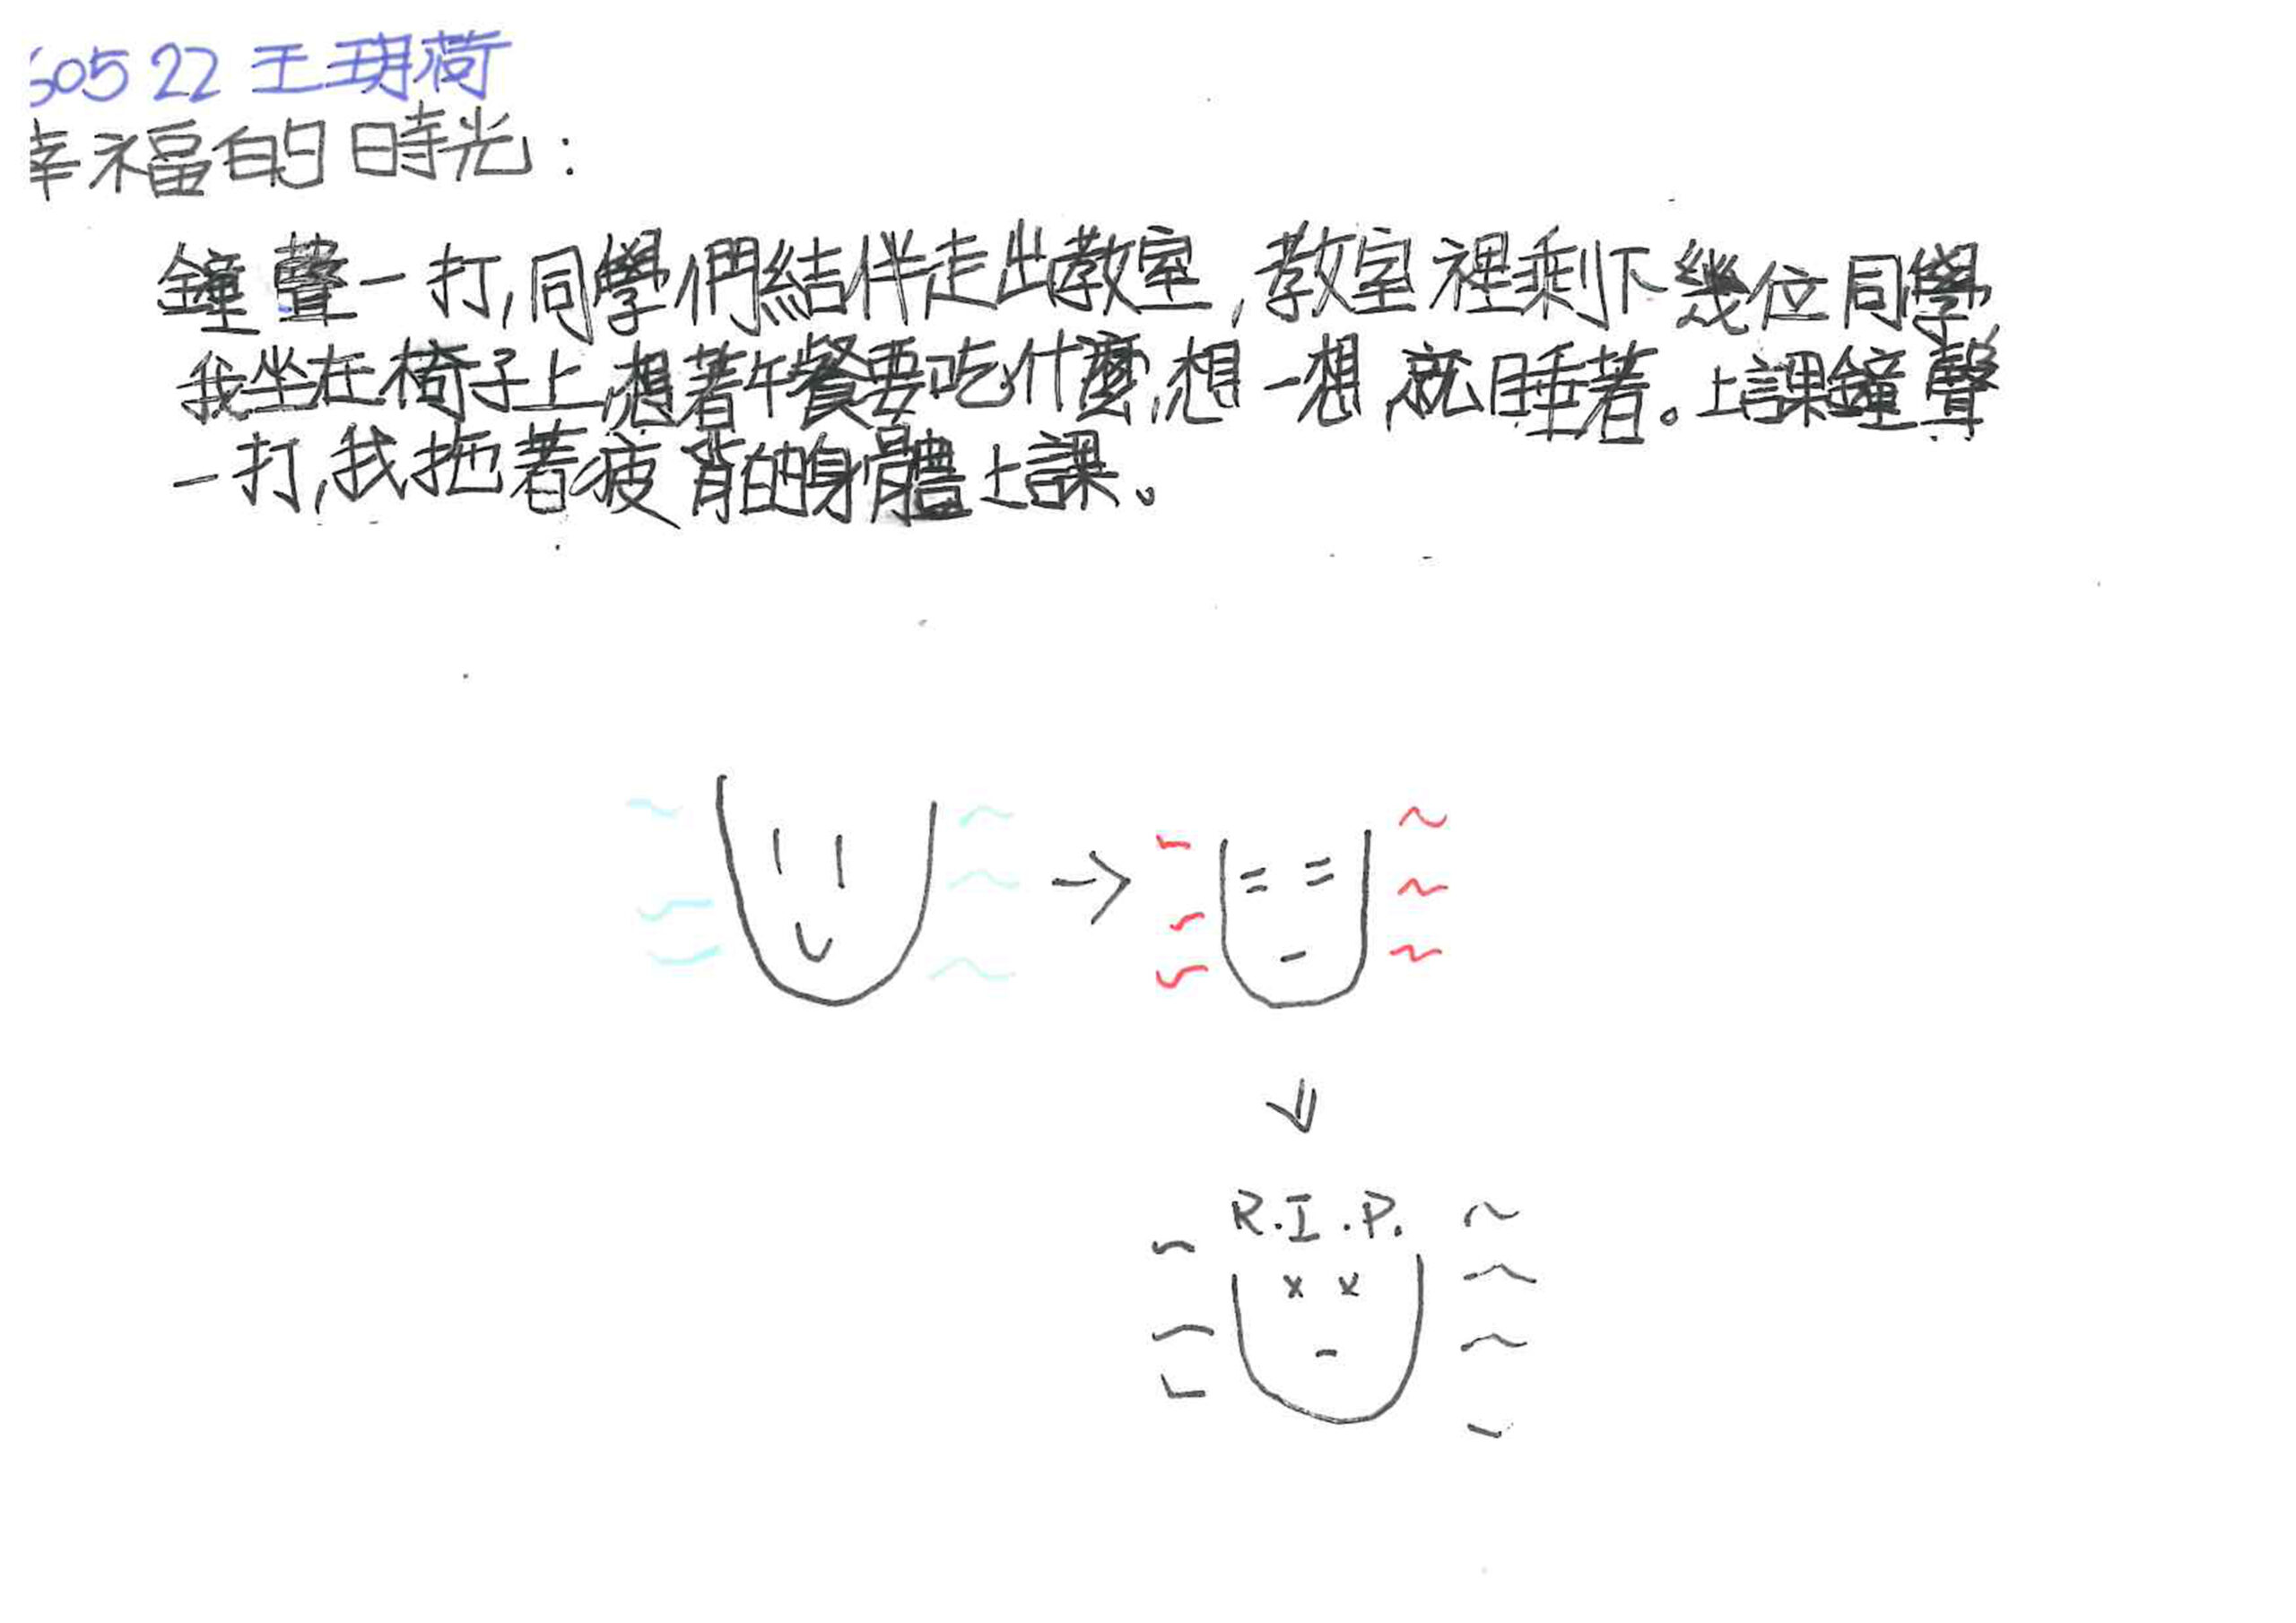 605 22 王玥荷
幸福的時光：
鐘聲一打,同學們結伴走出教室,教室裡剩下幾位同學
我坐在椅子上,想著午餐要吃什麼,想一想,就睡著。上課鐘聲
一打,我拖著疲背的身體上課。
R.I.P.